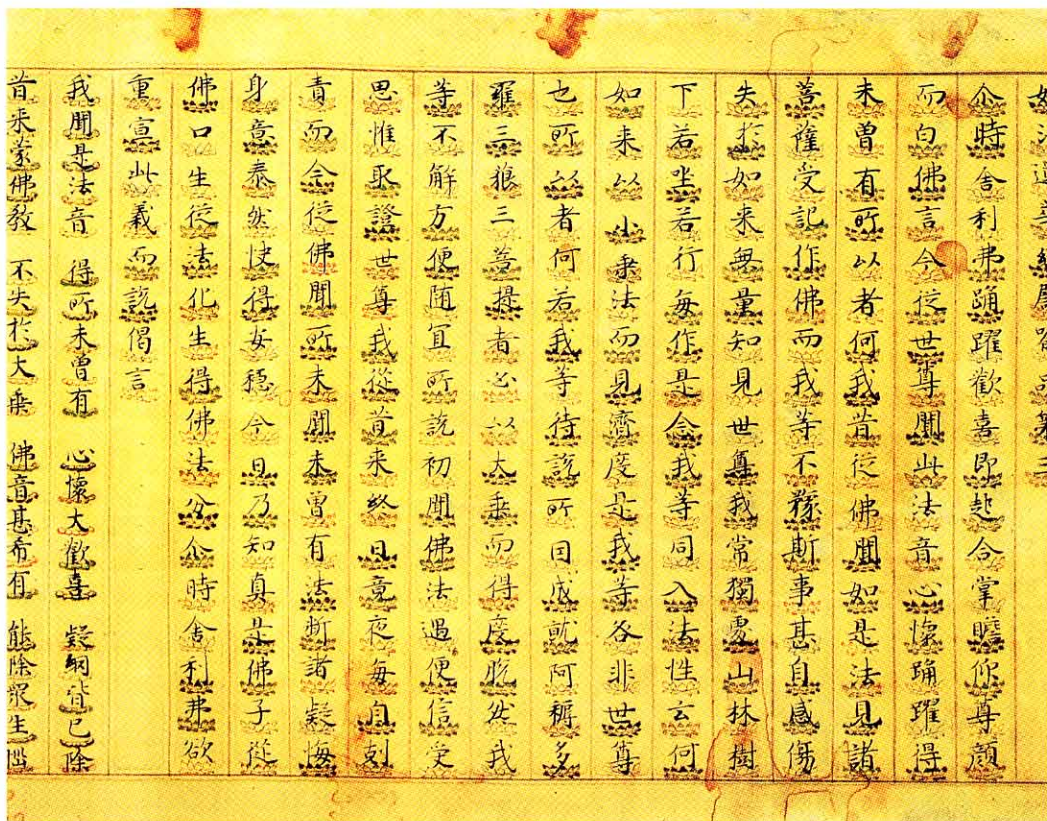 妙法蓮華經譬喻品第三
尒時舍利弗踊躍歡喜即起合掌瞻仰尊顏
而白佛言今從世尊聞此法音心懷踊躍得
未曾有所以者何我昔從佛聞如是法見諸
菩薩受記作佛而我等不豫斯事甚自感傷
失於如来無量知見世尊我常獨處山林樹
下若坐若行每作是念我等同入法性云何
如来以小乗法而見濟度是我等咎非世尊
也所以者何若我等待說所因成就阿耨多
羅三藐三菩提者必以大乗而得度脫然我
等不解方便随宜所說初聞佛法遇便信受
思惟取證世尊我從昔来終日竟夜每自剋
責而今從佛聞所未聞未曾有法断諸疑悔
身意泰然快得安穩今日乃知真是佛子從
佛口生從法化生得佛法分尒時舍利弗欲
重宣此義而說偈言
我聞是法音 得所未曾有 心懷大歡喜 疑網皆已除
昔来蒙佛教 不失於大乗 佛音甚希有 能除眾生惱